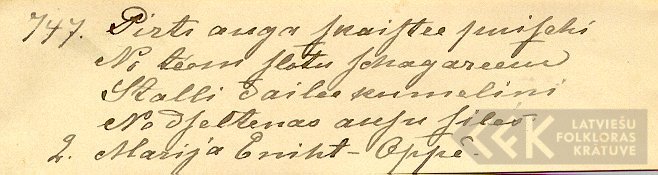 747. Pirti auga skaistee puischi
No teem slotu schagareem
Stalli dailee kumelini
No dseltenas ausu siles
2. Marija Eniht-Oppe.
LATVIEŠU
FOLKLORAS
KRĀTUVE